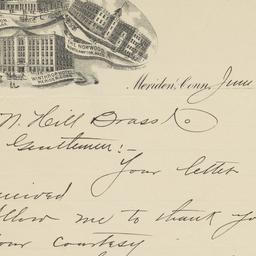 THE NORWOOD
NORTHAMPTON, MASS.
WINTHROP HOTEL
MERIDEN, CONN.
Meriden, Conn. June
N. Hill Brass Co
Gentlemen:-
Your letter
received
Allow me to thank you
your courtesy